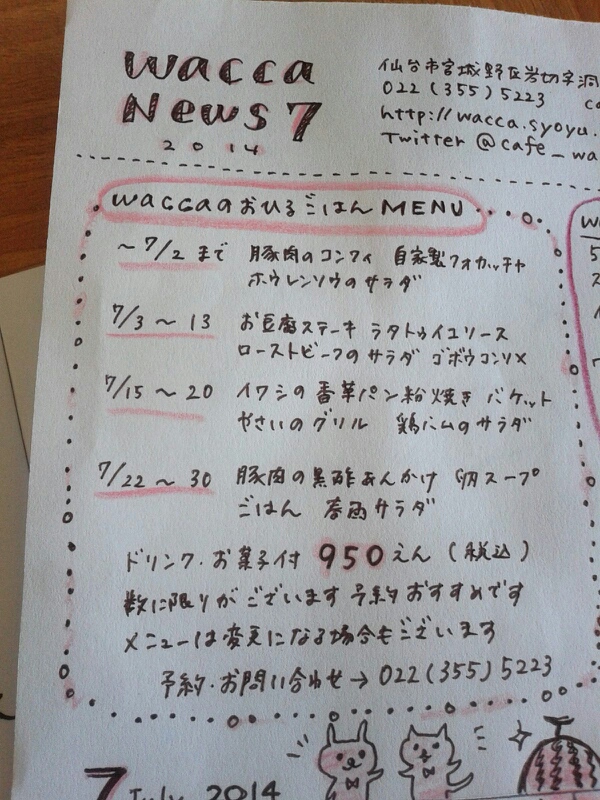 wacca
News 7
2014
仙台市宮城野区岩切字洞
022(355)5223
http://wacca.syoyu.
Twitter @cafe_wa
waccaのおひるごはんMENU
～7/2まで 豚肉のコンフィ 自家製フォカッチャ
ホウレンソウのサラダ
7/3～13 お豆腐ステーキ ラタトゥイユソース
ローストビーフのサラダ ゴボウコンソメ
7/15～20 イワシの香草パン粉焼き バケット
やさいのグリル 鶏ハムのサラダ
7/22～30 豚肉の黒酢あんかけ 卵スープ
ごはん 春雨サラダ
ドリンク・お菓子付 950えん(税込)
数に限りがございます 予約おすすめです
メニューは変更になる場合もございます
予約・お問い合わせ→022(355)5223
7 July 2014